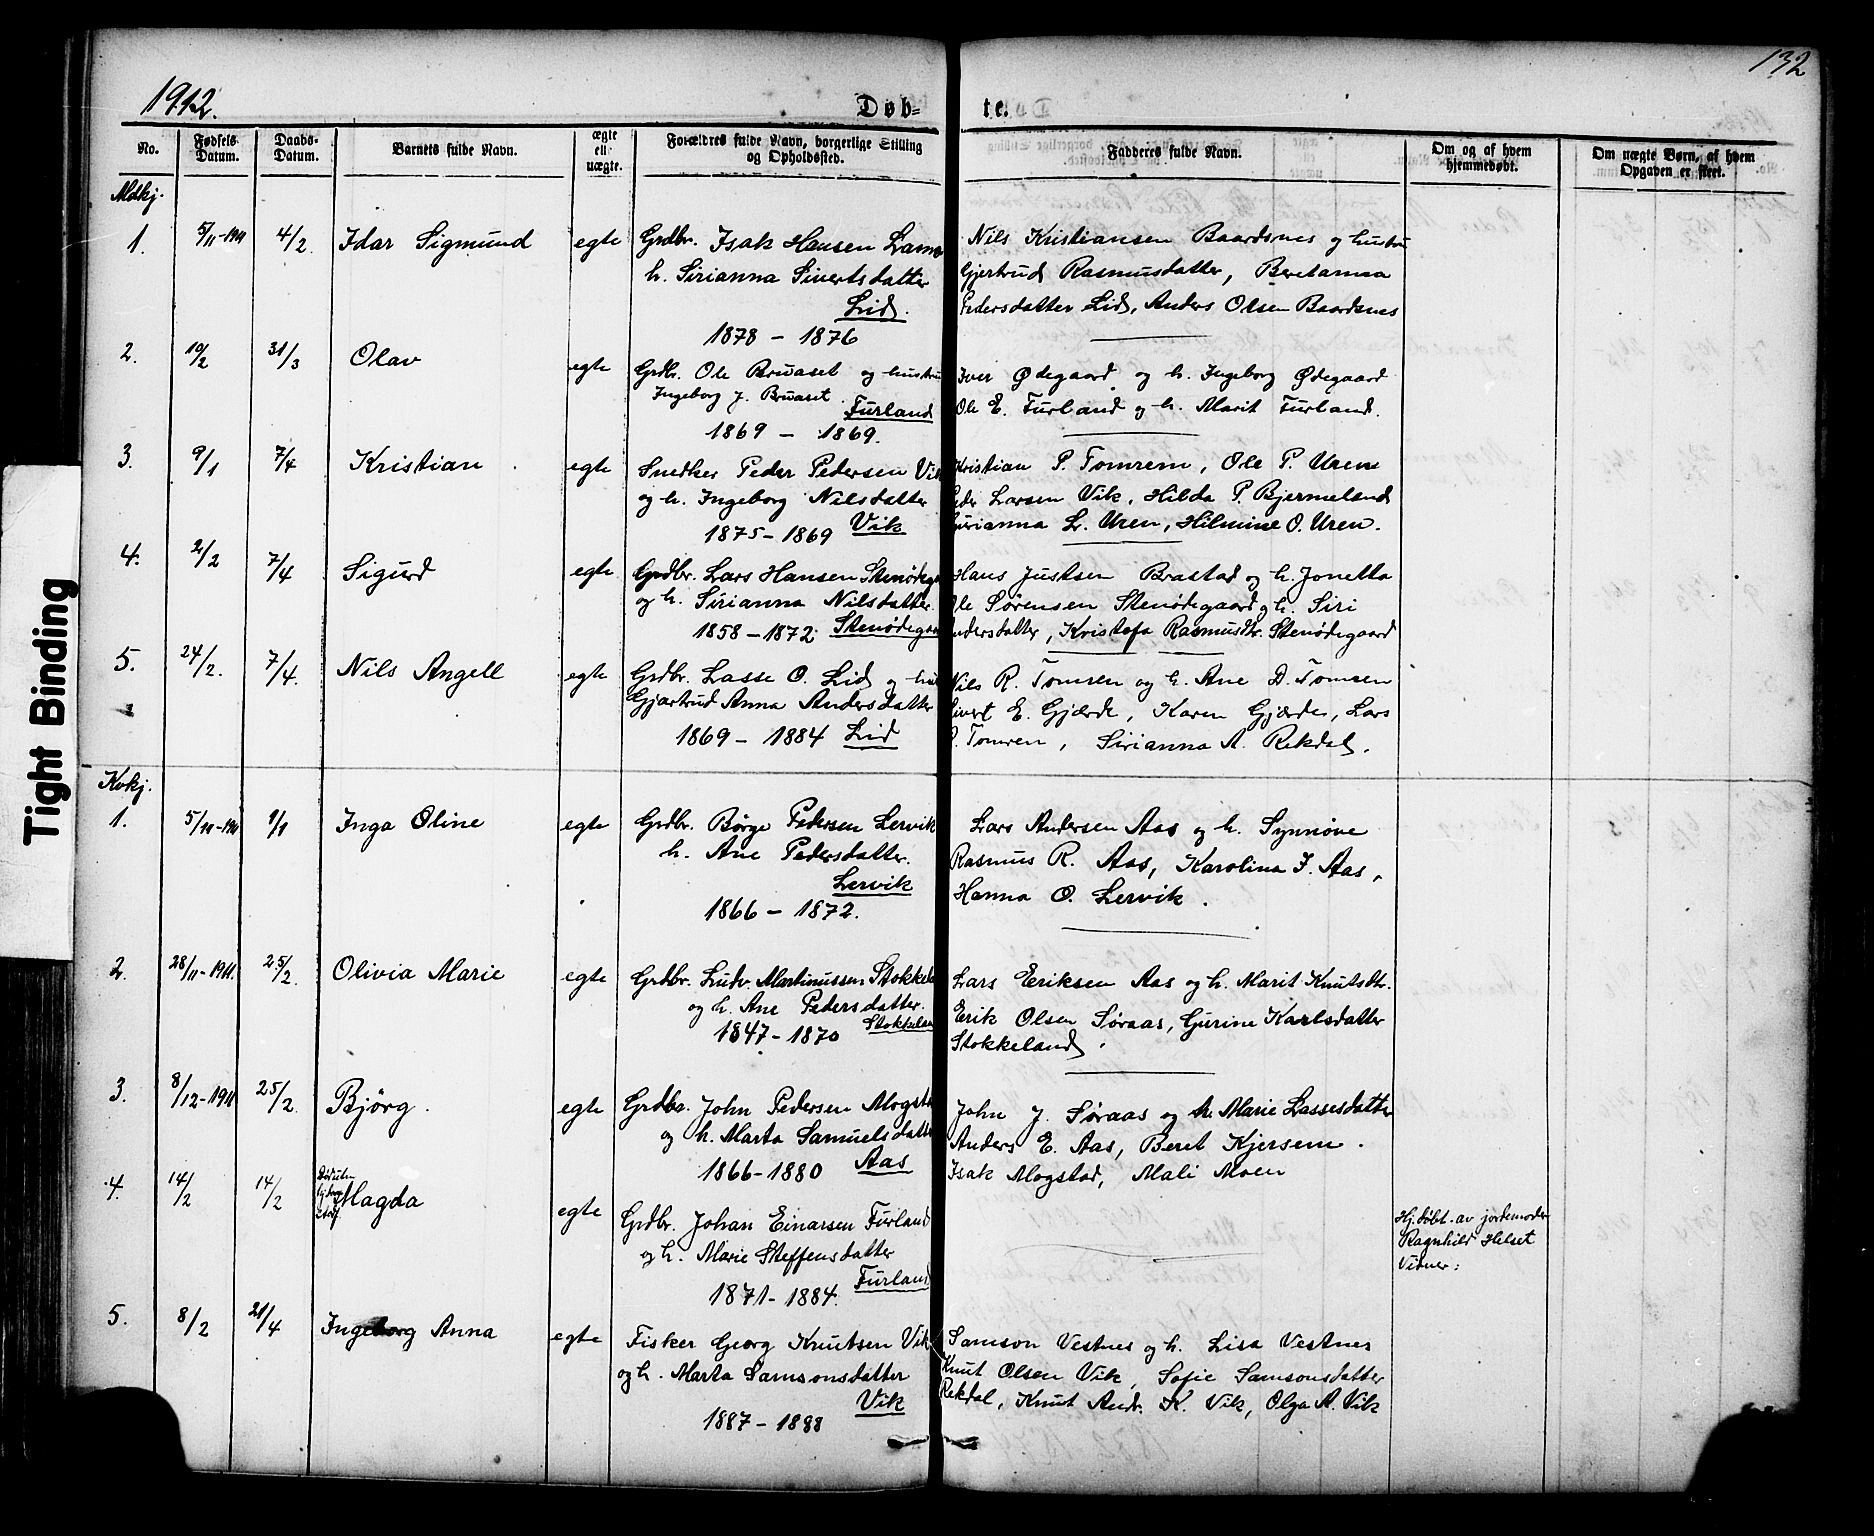 132
1912.
Døb= te.
No.
Fødsels Datum.
Daabs- Datum.
Barnets fulde Navn.
ægte ell. uægte.
Forældres fulde Navn, borgerlige Stilling og Opholdssted.
Fadderes fulde Navn.
Om og af hvem hjemmedøbt.
Om uægte Børn, af hvem Opgaven er skeet.
Mdkj.
1. 5/11-1911 4/2 Idar Sigmund egte Grdbr. Isak Hansen
h. Sirianna Sivertsdatter
Lid.
1878 - 1876
Nils Kristiansen Baardsnes og hustru
Gjertrud Rasmusdatter, Beretanna
Pedersdatter Lid, Anders Olsen Baardsnes
2. 10/2 31/3 Olav egte Grdbr. Ole Bruaset og hustru
Ingeborg J. Bruaset
Furland
1869 - 1869.
Iver Ødegaard og h. Ingeborg Ødegaard
Ole E. Furland og h. Marit Furland.
3. 9/1 7/4 Kristian egte Snedker Peder Pedersen Vik
og h. Ingeborg Nilsdatter
1875 - 1869 Vik
Kristian P. Tomrem, Ole P. Uren
Peder Larsen Vik, Hilda P. Bjermeland
Gurianna L. Uren, Hilmine O. Uren.
4. 2/2 7/4 Sigurd egte Grdbr. Lars Hansen Stenødeg
og h. Sirianna Nilsdatter.
1858 - 1872. Stenødegaa
Hans Justsen Brastad og h. Jonetta
Ole Sørensen Stenødegaard og h. Siri
Andersdatter, Kristofa Rasmusdtr. Stenødegaard
5. 24/2. 7/4. Nils Angell egte Grdbr. Lasse O. Lid og hu
Gjartrud Anna Andersdatter
1869 - 1884 Lid
Nils R. Tomren og h. Ane D. Tomren
Sivert E. Gjærde, Karen Gjærde, Lars
Tomren, Sirianna A. Rekdal.
Kvkj.
1. 5/11-1911 1/1 Inga Oline egte Grdbr. Børge Pedersen Lervik
h. Ane Pedersdatter.
Lervik
1866 - 1872.
Lars Andersen Aas og h. Synnøve
Rasmus R. Aas, Karolina J. Aas,
Hanna O. Lervik.
2. 28/11-1911. 25/2. Olivia Marie egte Grdbr. Ludv. Martinussen Stokkel
og h. Ane Pedersdatter.
1847 - 1870 Stokkelan
Lars Eriksen Aas og h. Marit Knutsdtr.
Erik Olsen Søraas, Gurine Karlsdatter
Stokkeland.
3. 8/12-1911 25/2 Bjørg. egte Grdbr. John Pedersen Mogsta
og h. Marta Samuelsdatte
1866 - 1880 Aas
John J. Søraas og h. Marie Lassesdatter
Anders E. Aas, Beret Kjersem.
Isak Mogstad, Mali Moen
4. 14/2 14/2 Magda egte Grdbr. Johan Einarsen Furland
og h. Marie Steffensdatter
Furland
1871 - 1884.
Hj.døbt av jordemoder
Ragnhild Helset
Vidner:
5. 8/2 21/4 Ingeborg Anna egte Fisker Georg Knutsen Vik
og h. Marta Samsonsdatter
Vik
1887 - 1888
Samson Vestnes og h. Lisa Vestnes
Knut Olsen Vik, Sofie Samsonsdatter
Rekdal, Knut Andr. K. Vik, Olga A. Vik
Tight Binding